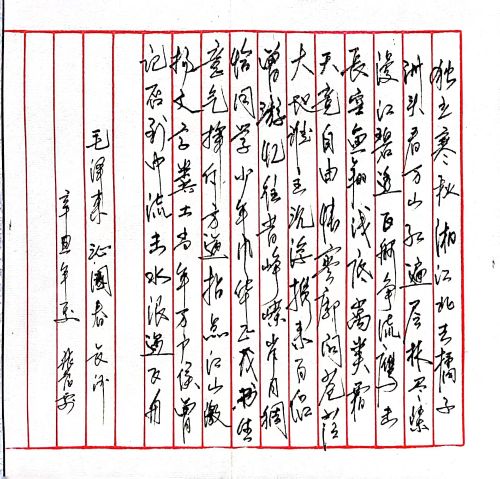 独立寒秋湘江北去橘子
洲头看万山红遍层林尽染
漫江碧透百舸争流鹰击
長空鱼翔浅底萬类霜
天竞自由怅寥廓问苍茫
大地谁主沉浮携来百侣
曾游忆往昔峥嵘岁月稠
恰同学少年风华正茂书生
意气挥斥方遒指点江山激
扬文字粪土当年万户侯曾
记否到中流击水浪遏飞舟
毛泽东 沁園春 长沙
辛丑年夏